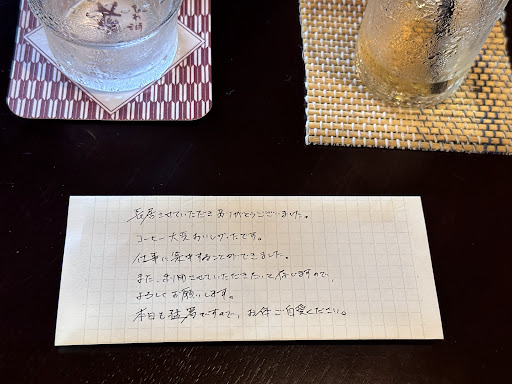 長居させていただきありがとうございました。
コーヒー大変おいしかったです。
仕事に集中することができました。
また、利用させていただきたいと思いますので、
よろしくお願いします。
本日も猛暑ですので、お体ご自愛ください。